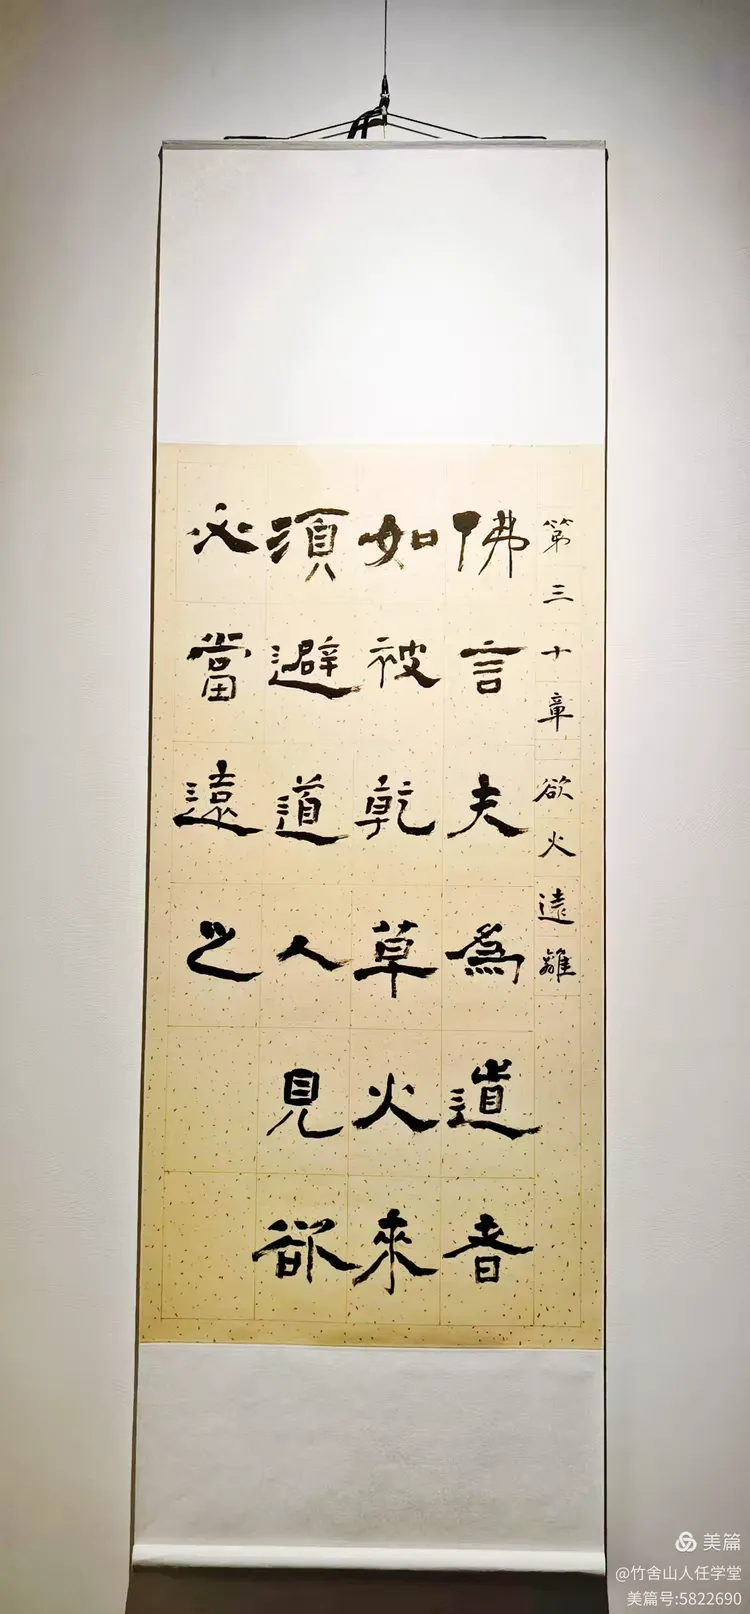 第三十章欲火遠離
佛言夫為道者
如被乾草火來
須避道人見欲
必當遠之
美篇
@竹舍山人任学堂
美篇号:5822690